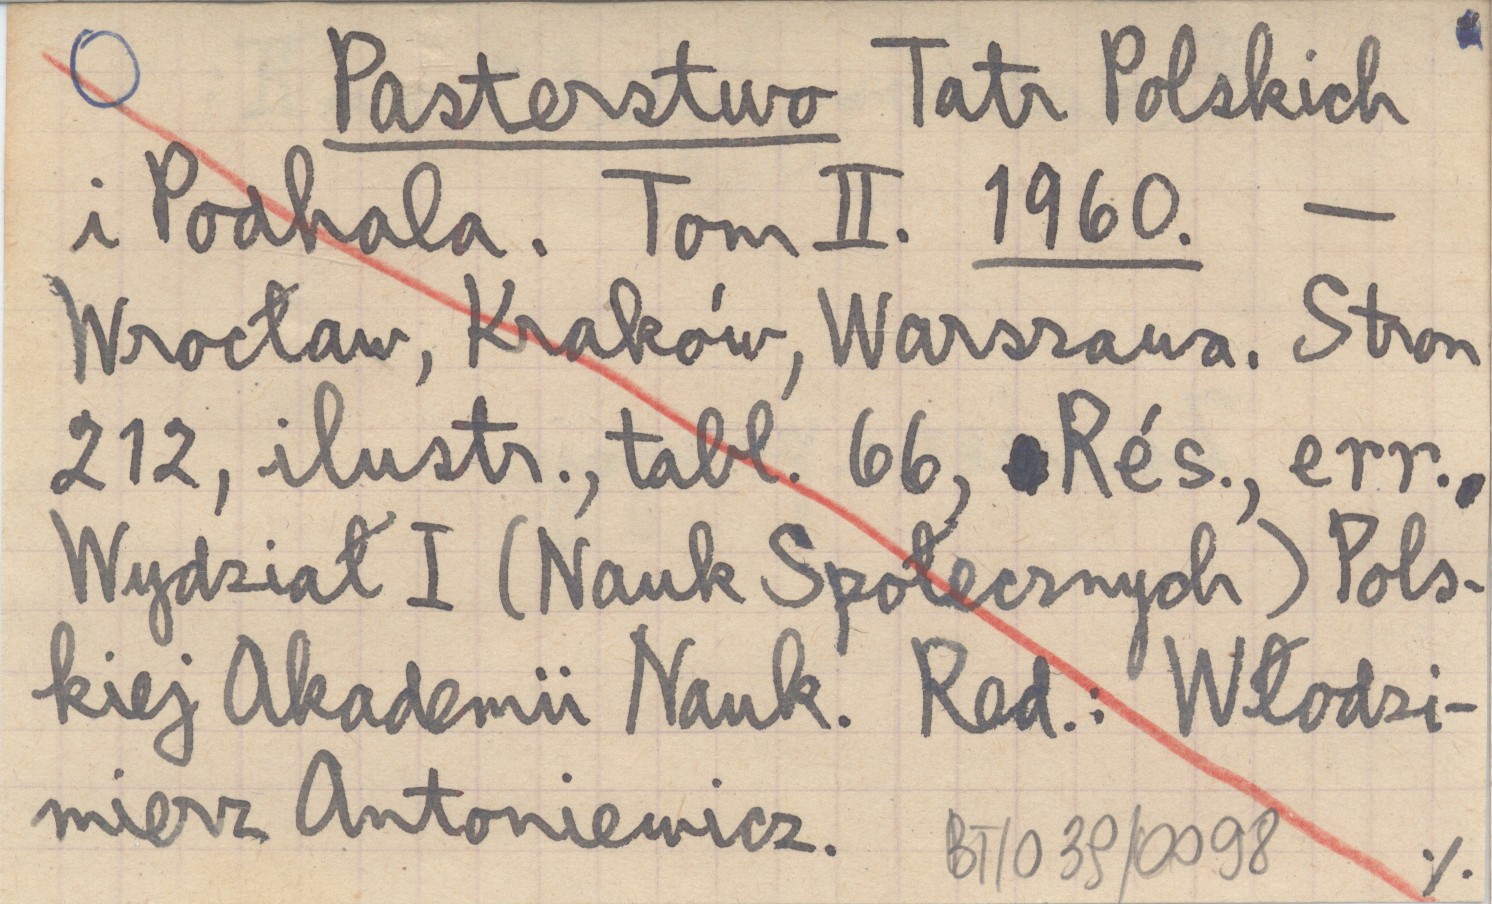 Pasterstwo Tatr Polskich
i Podhala. Tom II. 1960. —
Wrocław, Kraków, Warszawa. Stron
212, ilustr., tabl. 66, Rés., err.,
Wydział I (Nauk Społecznych) Pols-
kiej Akademii Nauk. Red.: Włodzi-
mierz Antoniewicz.
BT/O 39/0098
./.